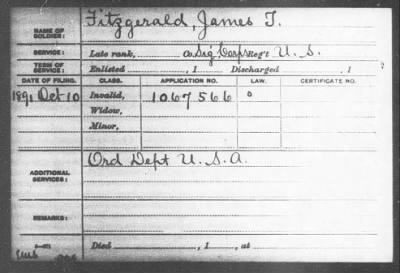 NAME OF SOLDIER: Fitzgerald, James T.
SERVICE: Late rank, Co. Sig Corps Reg't U. S.
TERM OF SERVICE: Enlisted , 1 Discharged , 1
DATE OF FILING. CLASS. APPLICATION NO. LAW. CERTIFICATE NO.
1891 Oct 10 Invalid, 1067566
Widow,
Minor,
ADDITIONAL SERVICES: Ord Dept U. S. A.
REMARKS:
Died , 1 , at